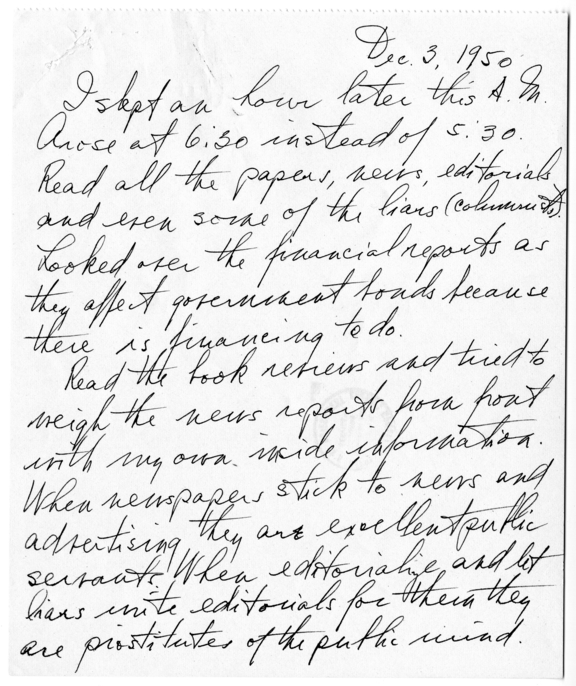 Dec. 3, 1950
I slept an hour later this A.M.
Arose at 6:30 instead of 5:30.
Read all the papers, news, editorials
and even some of the liars (columnists).
Looked over the financial reports as
they affect government bonds because
there is financing to do.
Read the book reviews and tried to
weigh the news reports from front
with my own inside information.
When newspapers stick to news and
advertising they are excellent public
servants. When editorialize and let
liars write editorials for them they
are prostitutes of the public mind.